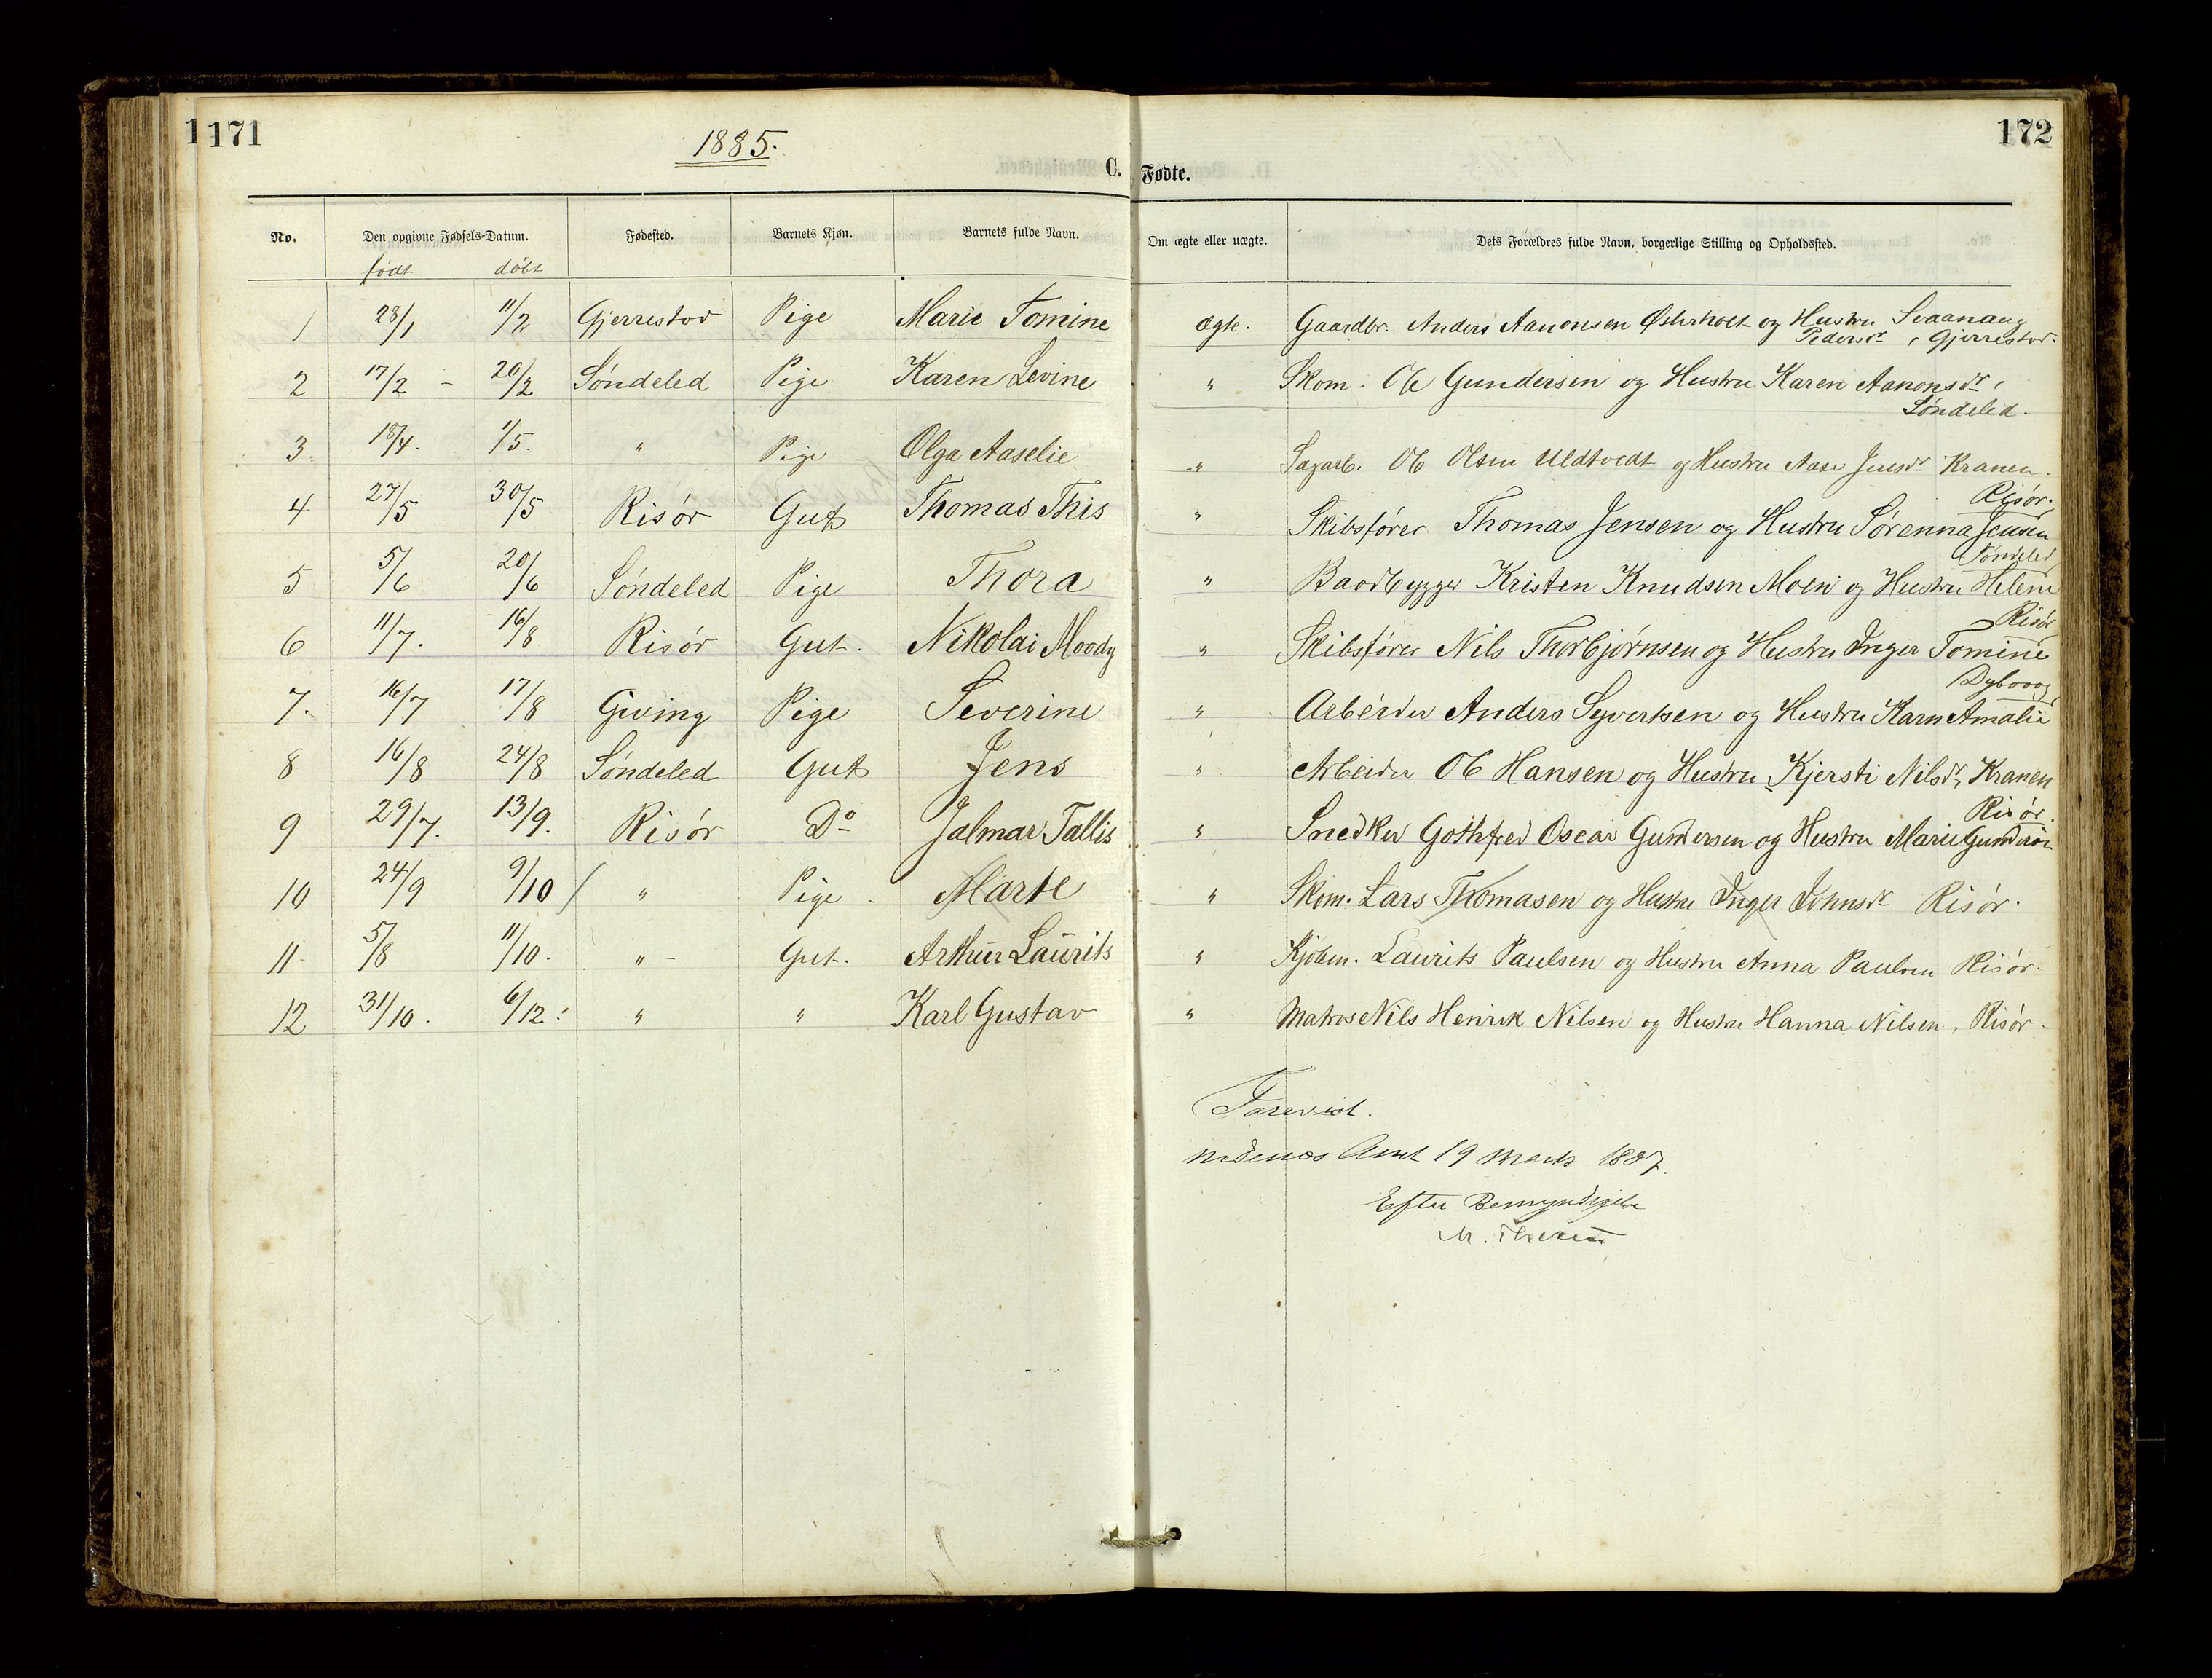 171
172
1885.
C. Fødte.
No. Den opgivne Fødsels-Datum. Fødested. Barnets Kjøn. Barnets fulde Navn. Om ægte eller uægte. Dets Forældres fulde Navn, borgerlige Stilling og Opholdssted.
født døbt
1 28/1 11/2 Gjerrestad Pige Marie Tomine ægte. Gaardbr. Anders Aanonsen Østerholt og Hustru
Pedersdr, Gjerrestad.
2 17/2 - 20/2 Søndeled Pige Karen Levine " Skom. Ole Gundersen og Hustru Karen Aanonsdr,
Søndeled.
3 18/4. 1/5. " Pige Olga Aaselie " Sagarb. Ole Olsen Uldtvedt og Hustru Aase Jensdr Kranen.
Risør.
4 27/5 30/5 Risør Gut Thomas This " Skibsfører Thomas Jensen og Hustru Sørenna Jensen
Søndeled
5 5/6 20/6 Søndeled Pige Thora " Baadbygger Kristen Knudsen Moen og Hustru Helene
Risør
6 11/7. 16/8 Risør Gut. Nikolai Moody " Skibsfører Nils Thorbjørnsen og Hustru Inger Tomine
Dybvaag
7. 16/7 17/8 Giving Pige Severine " Arbeider Anders Syvertsen og Hustru Karn Amalie
8 16/8 24/8 Søndeled Gut Jens " Arbeider Ole Hansen og Hustru Kjersti Nilsdr, Kranen
Risør.
9 29/7. 13/9. Risør Do Jalmar Tallis " Snedker Gothfred Oscar Gundersen og Hustru Marie Gundersen
10 24/9 9/10 " Pige Marte " Skom. Lars Thomasen og Hustru Inger Johnsdr Risør.
11 5/8 11/10. " Gut. Arthur Laurits " Kjøbm. Laurits Paulsen og Hustru Anna Paulsen Risør.
12 31/10. 6/12. " " Karl Gustav " Matros Nils Henrik Nilsen og Hustru Hanna Nilsen, Risør.
Forevist.
Nedenæs Amt 19 Marts 1887.
Efter Bemyndigelse
M.